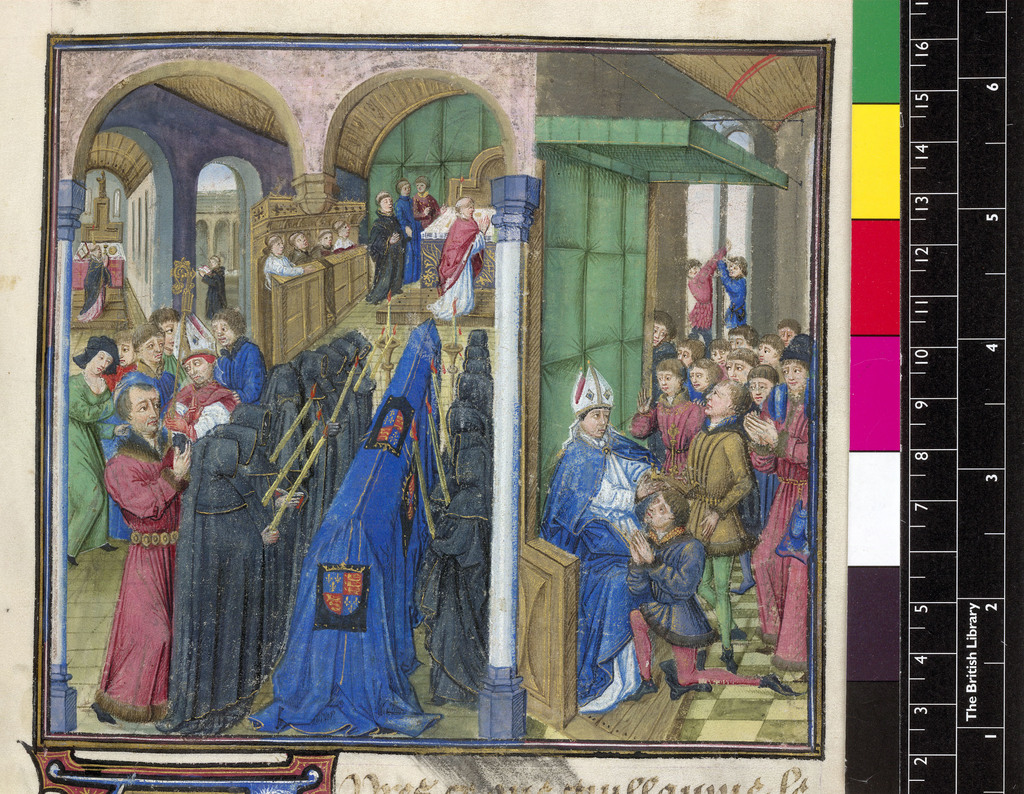 Pres ce que guillaume le
16
15
14
13
12
11
10
9
8
7
6
5
4
3
2
6
5
4
3
2
1
The British Library